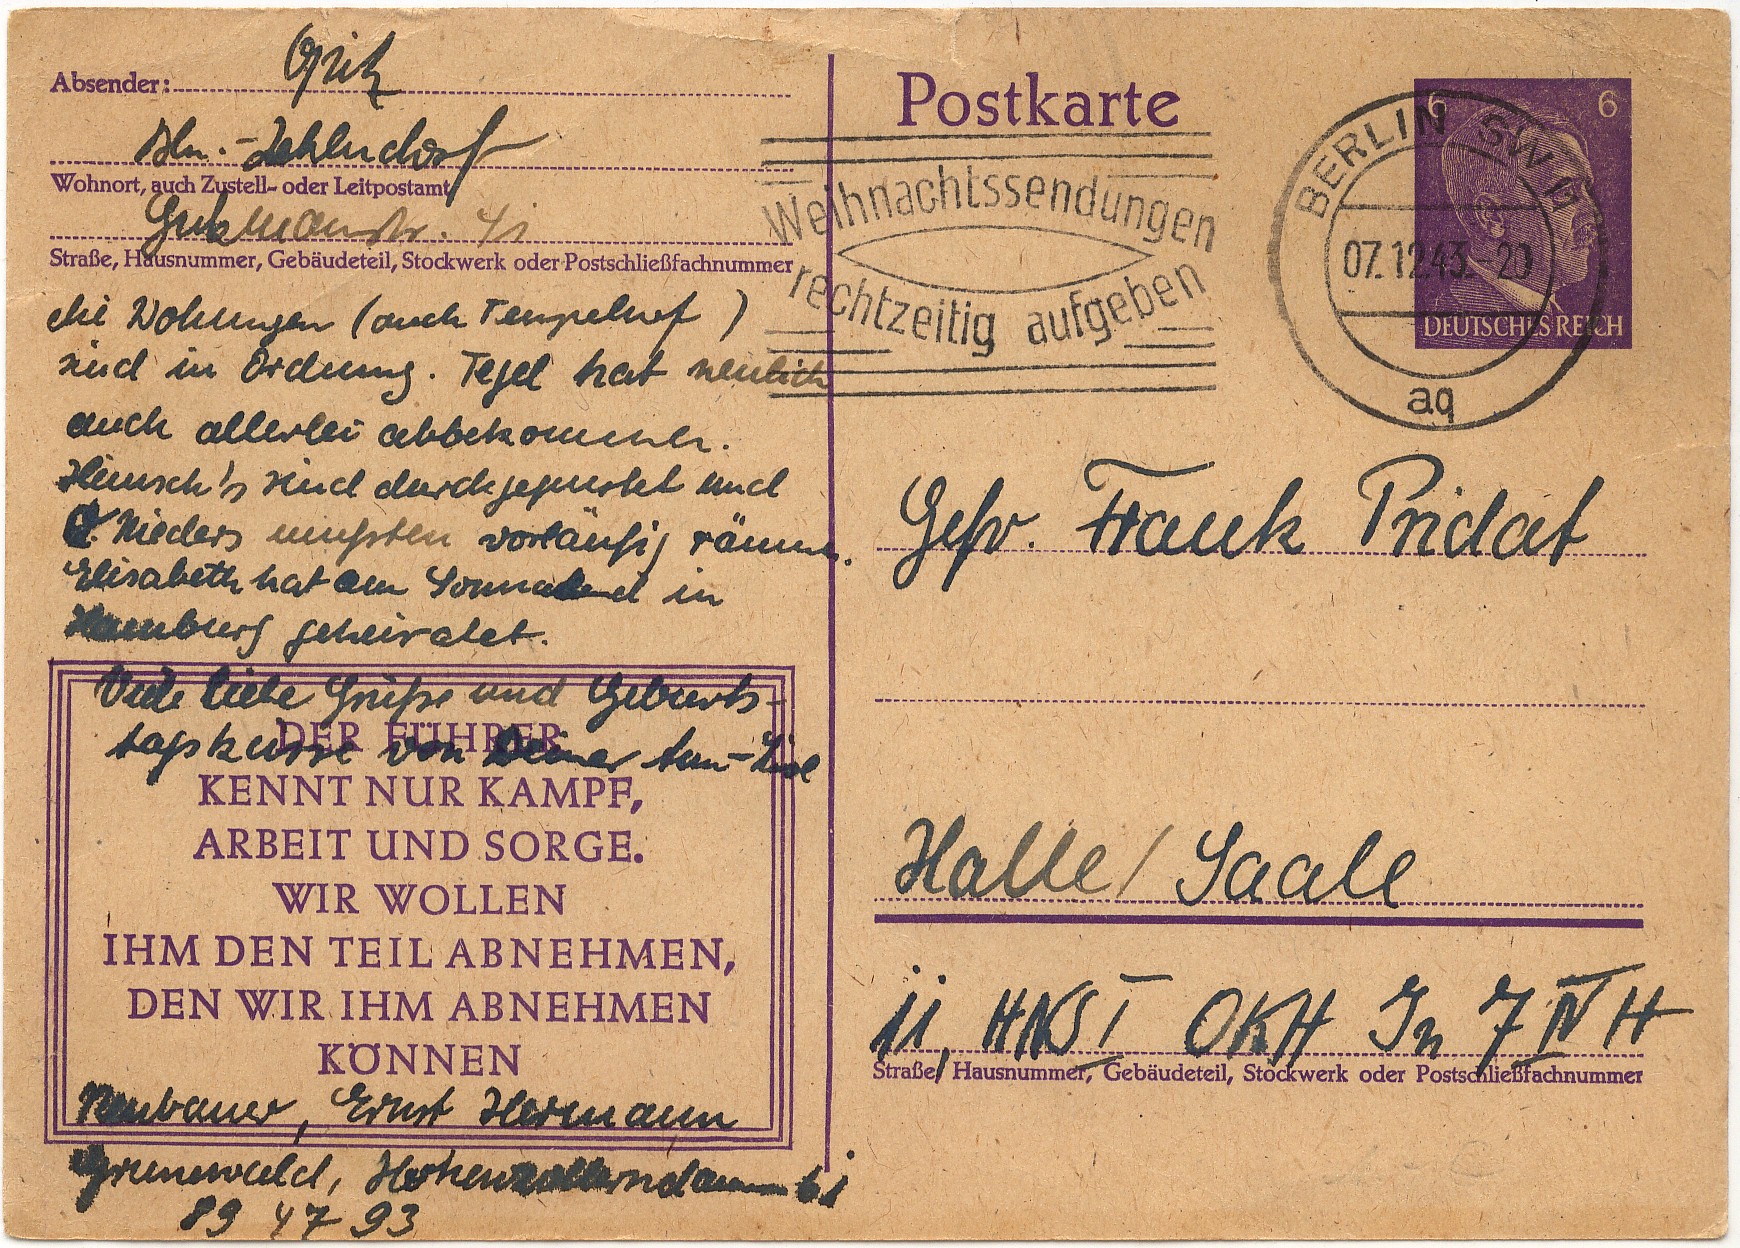 Absender: Opitz
Bln.-Zehlendorf
Wohnort, auch Zustell- oder Leitpostamt
Straße, Hausnummer, Gebäudeteil, Stockwerk oder Postschließfachnummer
die Wohnungen (auch Tempelhof)
sind in Ordnung. Tegel hat neulich
auch allerlei abbekommen.
sind durchgepustet und
Nieders mußten vorläufig räumen.
Elisabeth hat am Sonnabend in
Hamburg geheiratet.
Viele liebe Grüße und Geburts-
tagsküsse von Deiner
DER FÜHRER
KENNT NUR KAMPF,
ARBEIT UND SORGE.
WIR WOLLEN
IHM DEN TEIL ABNEHMEN,
DEN WIR IHM ABNEHMEN
KÖNNEN
Neubauer, Ernst Hermann
Grunewald, Hohenzollerndamm
89 47 93
Postkarte
Weihnachtssendungen
rechtzeitig aufgeben
BERLIN SW 11
07.12.43.-20
aq
6 6
DEUTSCHES REICH
Gefr. Frank Pridat
Halle/Saale
11, HNS I OKH In 7 IV H
Straße, Hausnummer, Gebäudeteil, Stockwerk oder Postschließfachnummer